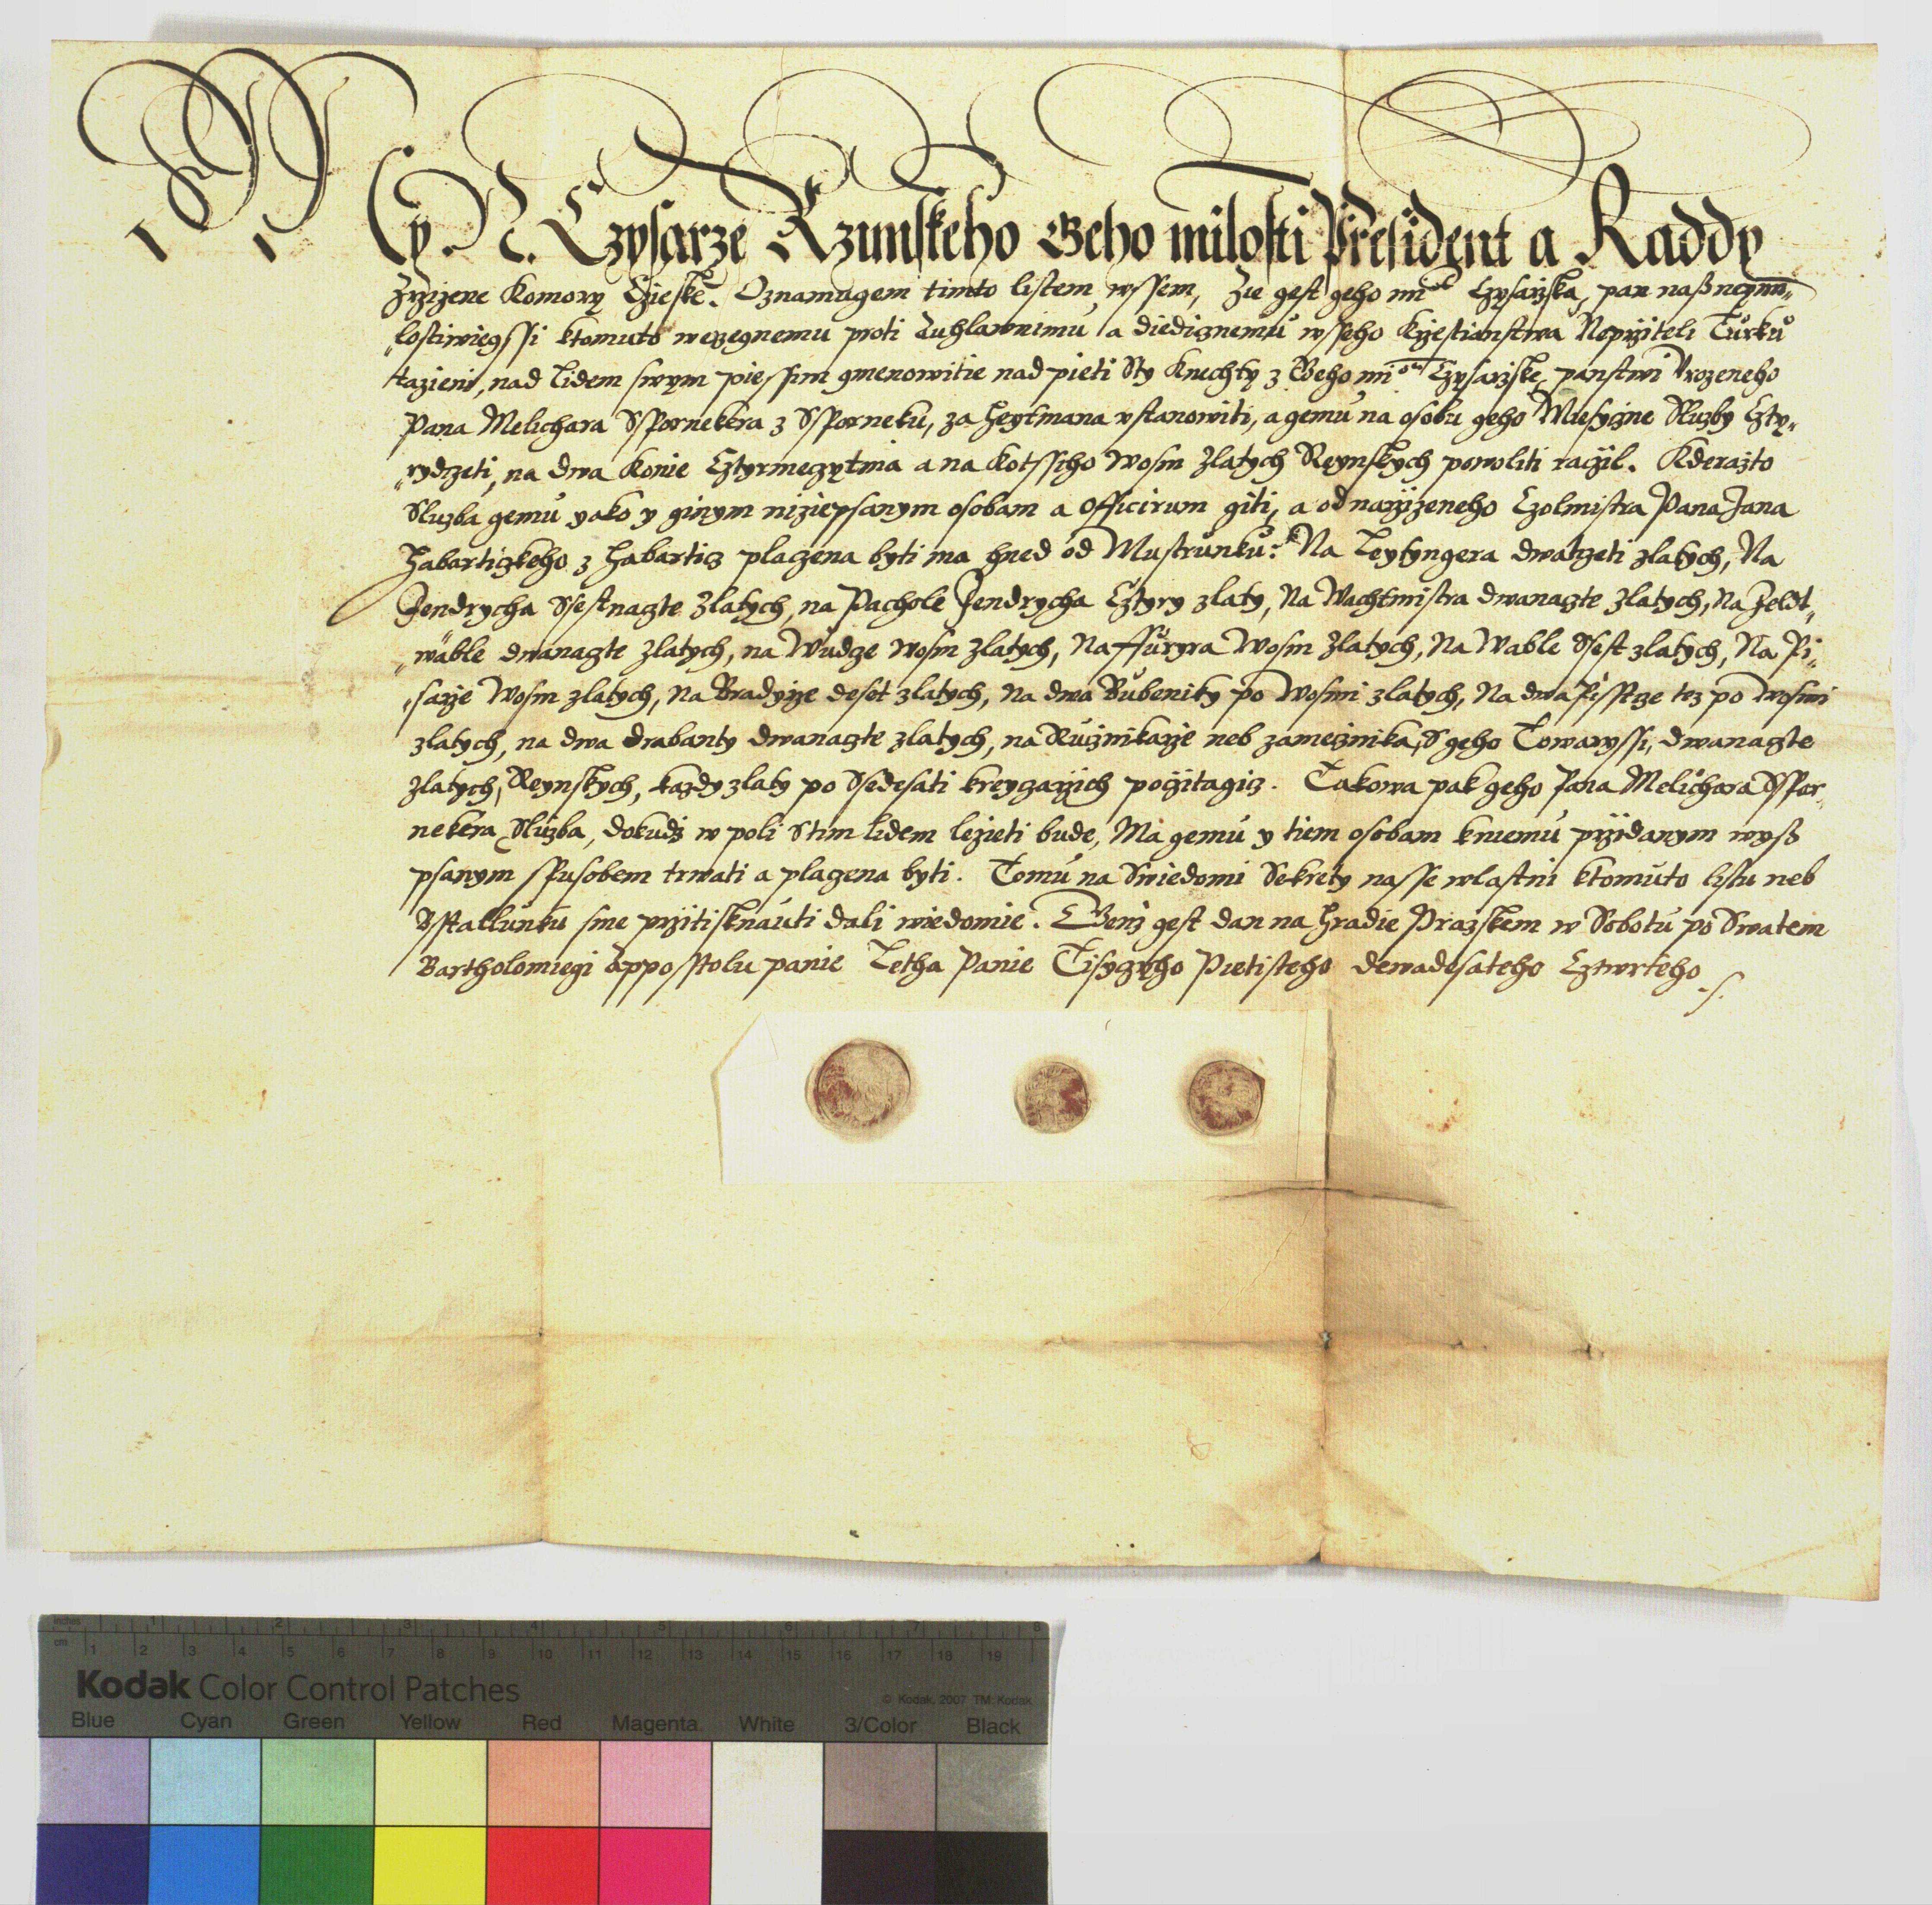 My N. Czysarze Rzimskeho Geho milosti President a Raddy
Zrzizene Komory Czieske. Oznamugem timto listem wssem, Zie gest geho mi^st Czysarzska, pan naß neymi„
„lostiwiegssi ktomuto werzegnemu proti Auhlawnimu a diedicznemu wsseho Krzestianstwa Neprziteli Turku
tazieni, nad Lidem swym piessim gmenowitie nad pieti Sty Knechty z Geho mi^sti Czysarzske panstwi Vrozeneho
Pana Melichara Sspornekera z Ssporneku, za Heytmana vstanowiti, a gemu na osobu geho Miesyczne Sluzby Czty„
„rydczeti, na dwa Konie Cztyrmezytma a na Kotssiho wosm Zlatych Reynskych powoliti raczil. Kderazto
Sluzba gemu yako y ginym niziepsanym osobam a Officirum giti, a od narzizeneho Czolmistra Pana Jana
Habarticzkeho z Habarticz placzena byti ma hned od Mustrunku: Na Leytyngera dwatczeti zlatych, Na
Fendrycha Ssestnaczte Zlatych, na Pachole Fendrycha Cztyry zlaty, Na Wachtmistra dwanaczte zlatych, Na Feldt„
„wable dwanaczte zlatych, na Wudcze wosm zlatych, Na ffuryra Wosm Zlatych, Na Wable Ssest zlatych, Na Pi„
„sarze Wosm zlatych, Na Bradyrze deset zlatych, na dwa Bubeniky po Wosmi zlatych, Na dwa Pisstcze tez po wosmi
zlatych, na dwa drabanty dwanaczte zlatych, na Rucznikarze neb zamecznika, S geho Towaryssi, dwanaczte
Zlatych, Reynskych, kazdy zlaty po Ssedesati kreyczarzich poczitagicz. Takowa pak geho Pana Melichara Sspor„
nekera Sluzba, dokudz w poli S tim lidem lezieti bude, Ma gemu y tiem osobam kniemu przidanym wyß
psanym spusobem trwati a placzena byti. Tomu na Swiedomi Sekrety nasse wlastni ktomuto listu neb
Bstallunku sme przitisknauti dali wiedomie. Genz gest dan na Hradie Prazskem w Sobotu po Swatem
Bartholomiegi Appostolu panie Letha Panie Tisyczyho Pietisteho dewadesateho Cztwrteho
inches 1 2 3 4 5 6 7 8
cm 1 2 3 4 5 6 7 8 9 10 11 12 13 14 15 16 17 18 19
Kodak Color Control Patches
© Kodak, 2007 TM: Kodak
Blue Cyan Green Yellow Red Magenta White 3/Color Black